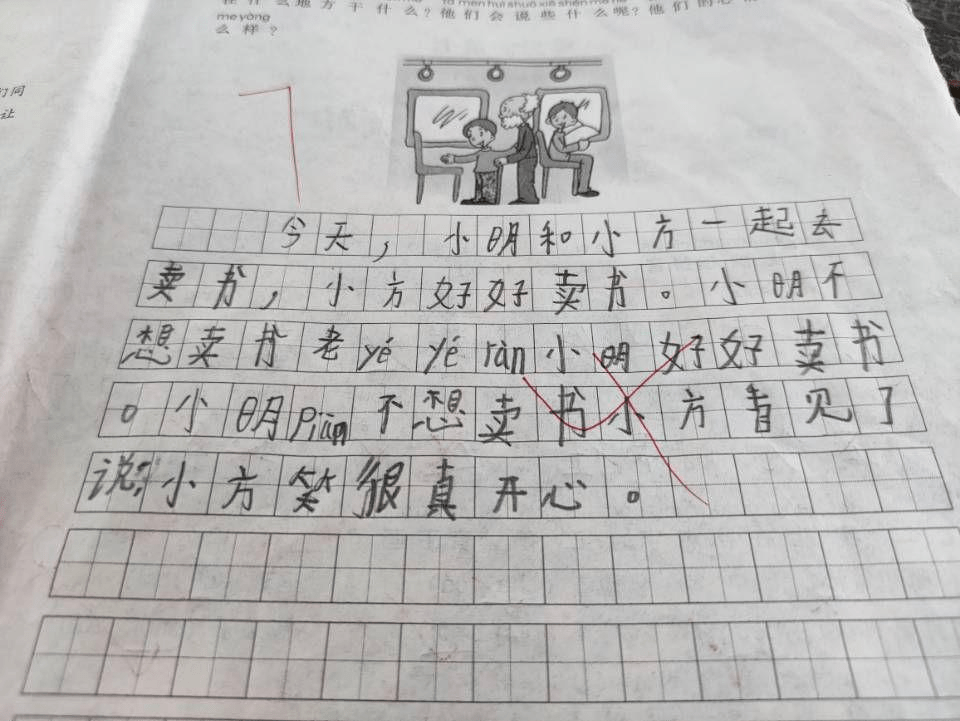 们同
让
在什么地方干什么？他们会说些什么呢？他们的心
me yàng
么样？
今天，小明和小方一起去
卖书，小方好好卖书。小明不
想卖书老yé yé ràn小明好好卖书
。小明piān不想卖书小方看见了
说：小方笑很真开心。